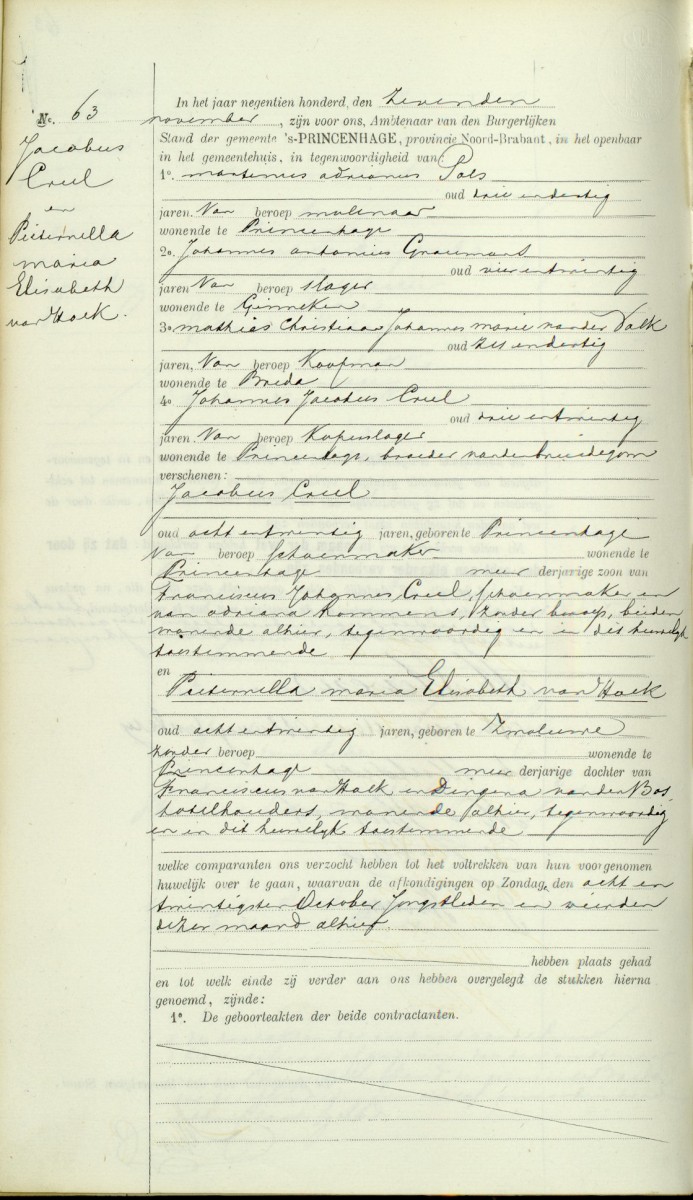 No. 63
Jacobus
Creel
en
Pieternella
maria
Elisabeth
van Hoek.
In het jaar negentien honderd, den zevenden
november, zijn voor ons, Ambtenaar van den Burgerlijken
Stand der gemeente 's-PRINCENHAGE, provincie Noord-Brabant, in het openbaar
in het gemeentehuis, in tegenwoordigheid van:
1o. martinus adrianus Pols
oud drie en dertig
jaren, Van beroep molenaar
wonende te Princenhage
2o. Johannes antonius Graumans
oud vier en twintig
jaren Van beroep slager
wonende te Ginneken
3o mathias Christiaan Johannes marie van der Valk
oud zes en dertig
jaren, Van beroep Koopman
wonende te Breda
4o Johannes Jacobus Creel
oud drie en twintig
jaren. Van beroep Koperslager
wonende te Princenhage, broeder van den bruidegom
verschenen:
Jacobus Creel
oud acht en twintig jaren, geboren te Princenhage
Van beroep schoenmaker wonende te
Princenhage meer derjarige zoon van
Franciscus Johannes Creel, schoenmaker en
van adriana Rommens, zonder beroep, beiden
wonende alhier, tegenwoordig en in dit huwelijk
toestemmende
en
Pieternella maria Elisabeth van Hoek
oud acht en twintig jaren, geboren te Zwaluwe
zonder beroep wonende te
Princenhage meer derjarige dochter van
Franciscus van Hoek en Dingena van der Bos,
hotelhouders, wonende alhier, tegenwoordig
en in dit huwelijk toestemmende
welke comparanten ons verzocht hebben tot het voltrekken van hun voorgenomen
huwelijk over te gaan, waarvan de afkondigingen op Zondag, den acht en
twintigsten October jongstleden en vierden
dezer maand alhier
hebben plaats gehad
en tot welk einde zij verder aan ons hebben overgelegd de stukken hierna
genoemd, zijnde:
1o. De geboorteakten der beide contractanten.